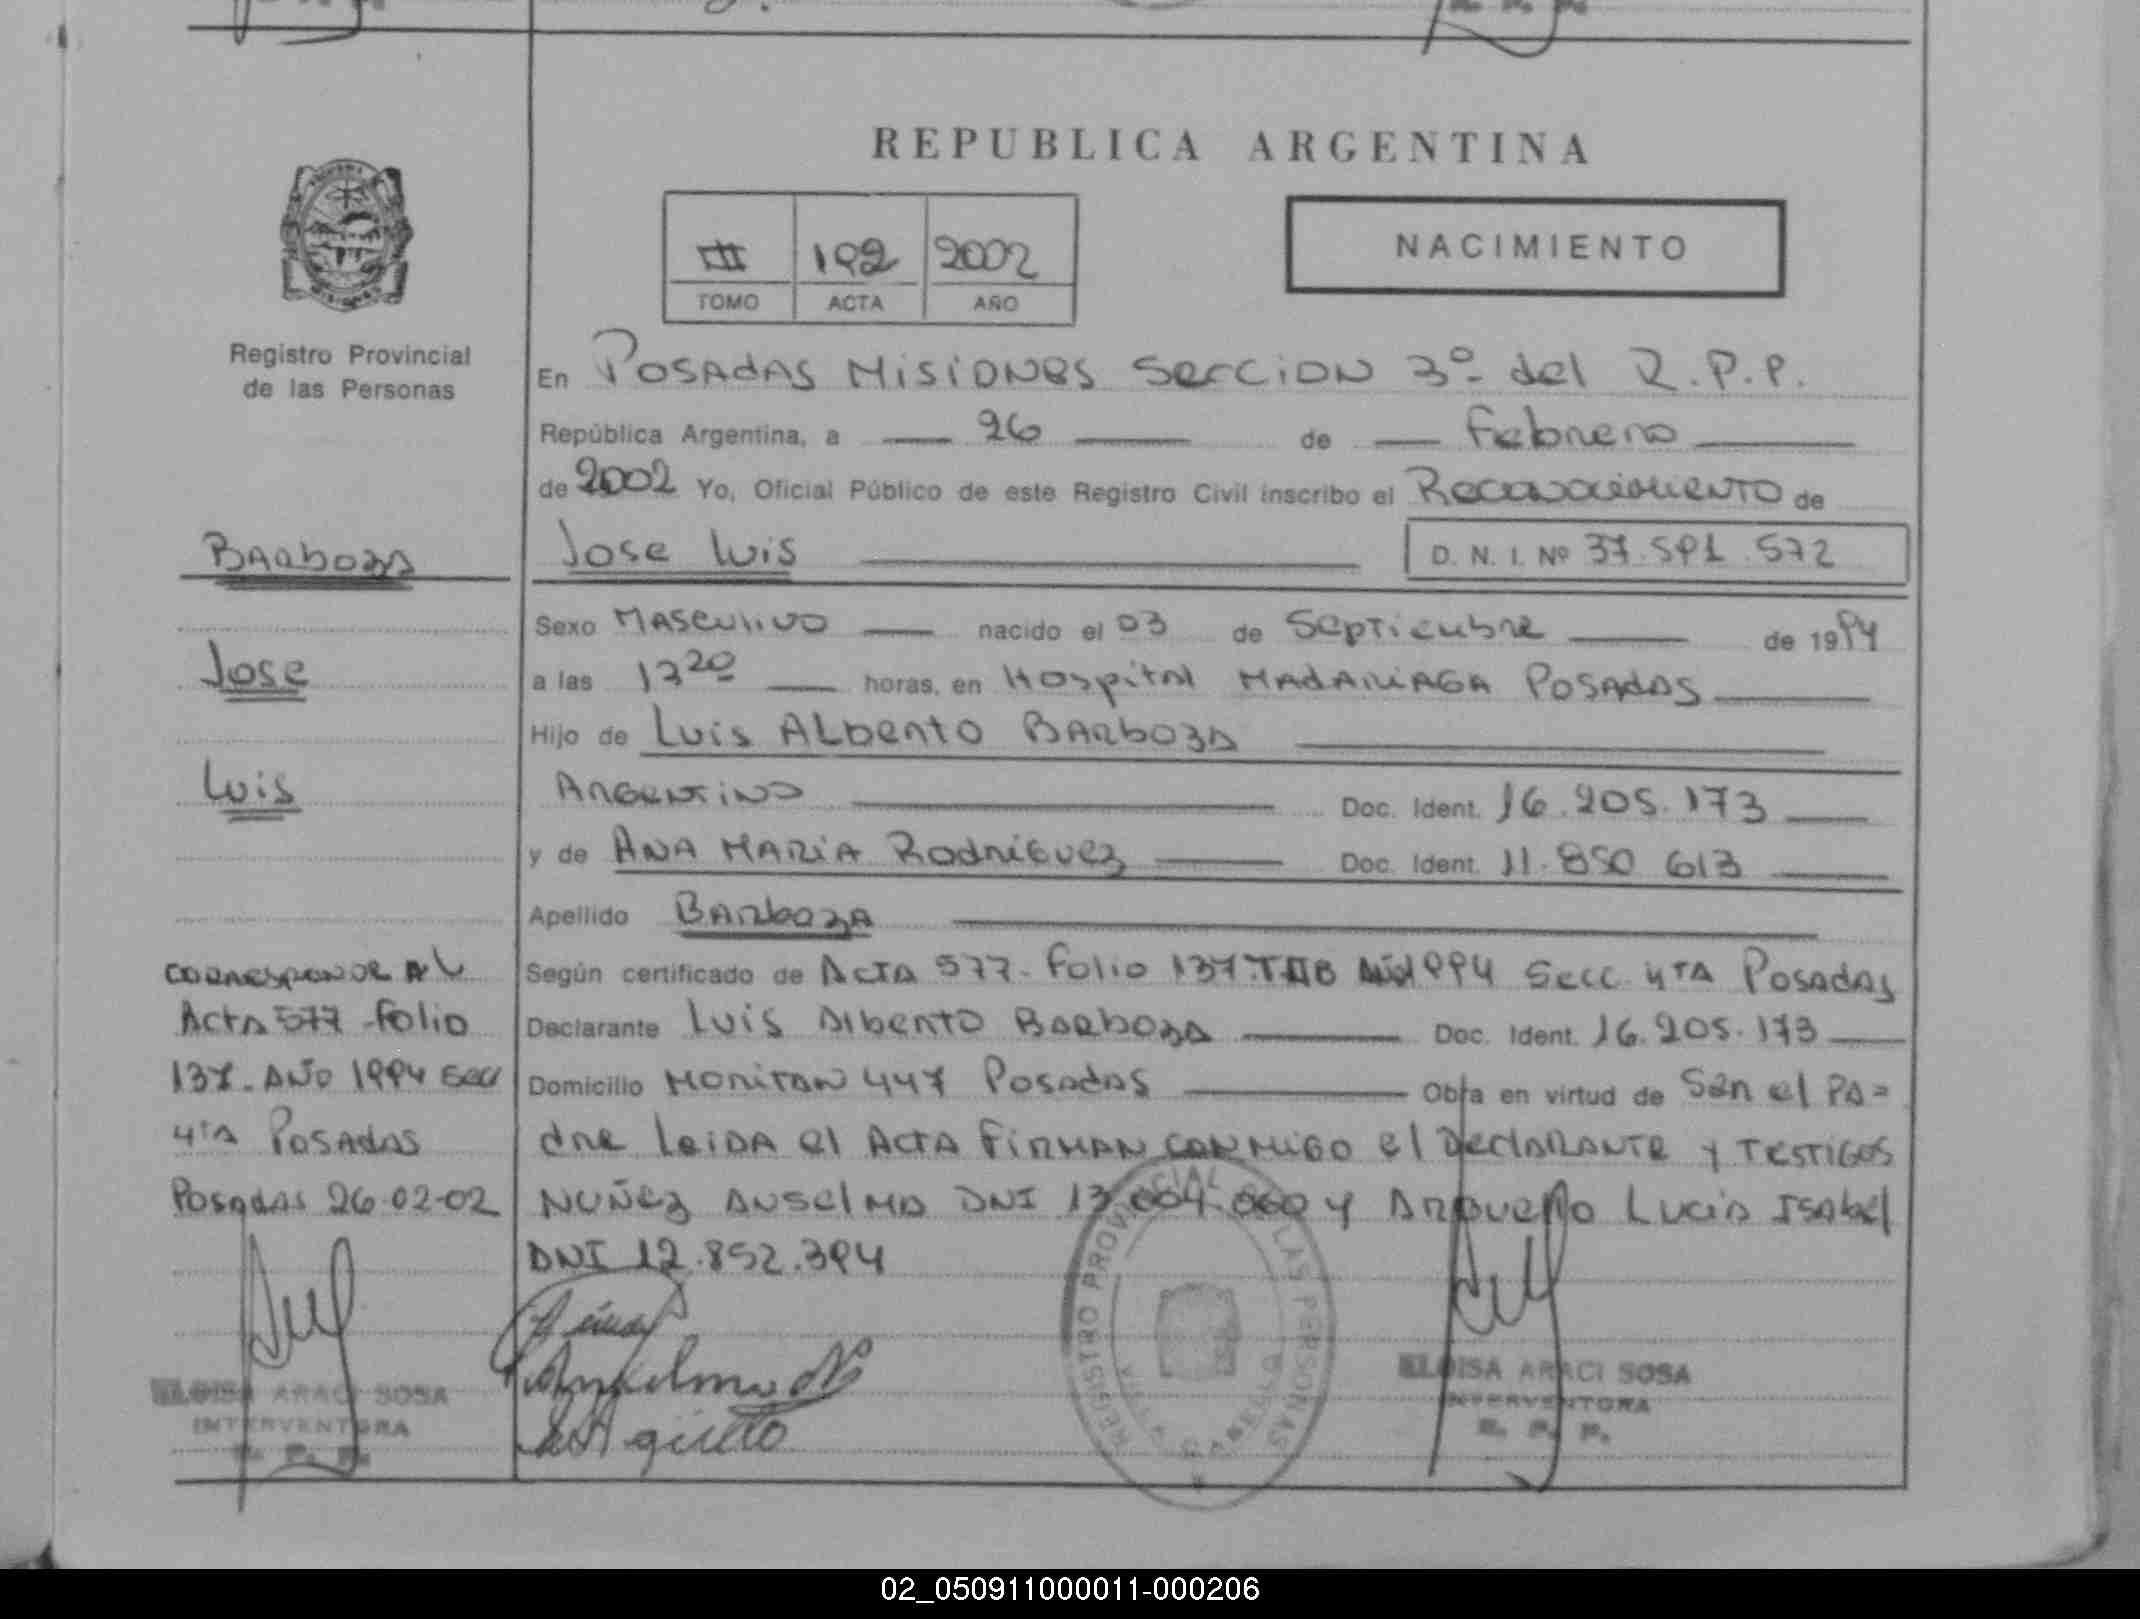 REPUBLICA ARGENTINA
III 192 2002
TOMO ACTA AÑO
NACIMIENTO
Registro Provincial
de las Personas
En POSADAS MISIONES SeccION 3º del R.P.P.
República Argentina, a 26 de Febrero
de 2002 Yo, Oficial Público de este Registro Civil inscribo el Reconocimiento de
Jose Luis D. N. I. Nº 37.591.572
Sexo MASCULINO nacido el 03 de Septiembre de 1994
a las 13 20 horas, en Hospital MADARIAGA POSADAS
Hijo de Luis ALberto BARboza
ARGENTINO Doc. Ident. 16.205.173
y de ANA MARIA Rodriguez Doc. Ident. 11.850 613
Apellido BARboza
Según certificado de ACTA 577- Folio 137 1994 Secc 4TA POSADAS
Declarante Luis Alberto BARBOZA Doc. Ident. 16.205.173
Domicilio 447 Posadas Obra en virtud de SER el PA=
dre LeiDA el ACTA FIRMAN CONMIGO el DeclARANTE y TESTIGOS
NUÑez Anselmo DNI 13.004.060 y Lucia ISAbel
DNI 12.852.394
BARboza
Jose
Luis
CORRESPONDE AL
Acta 577 -Folio
137- AÑO 1994 Secc
4TA POSADAS
Posadas 26-02-02
ELOISA ARACI SOSA
INTERVENTORA
R. P. P.
REGISTRO PROVINCIAL DE LAS PERSONAS
VILLA CABELLO
ELOISA ARACI SOSA
INTERVENTORA
R. P. P.
02_050911000011-000206